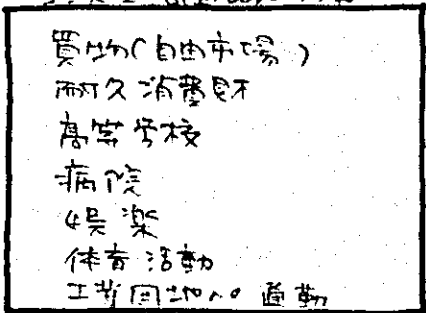 買物(自由市場)
耐久消費財
高等学校
病院
娯楽
体育活動
工業団地への通勤